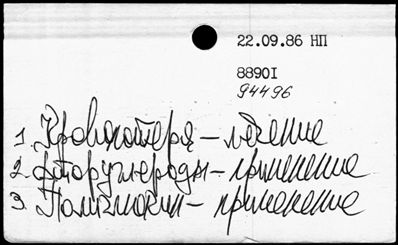 22.09.86 НП
8890I
94496
1. Кровопотеря – лечение
2. Фторуглероды – применение
3. Полиглюкин – применение